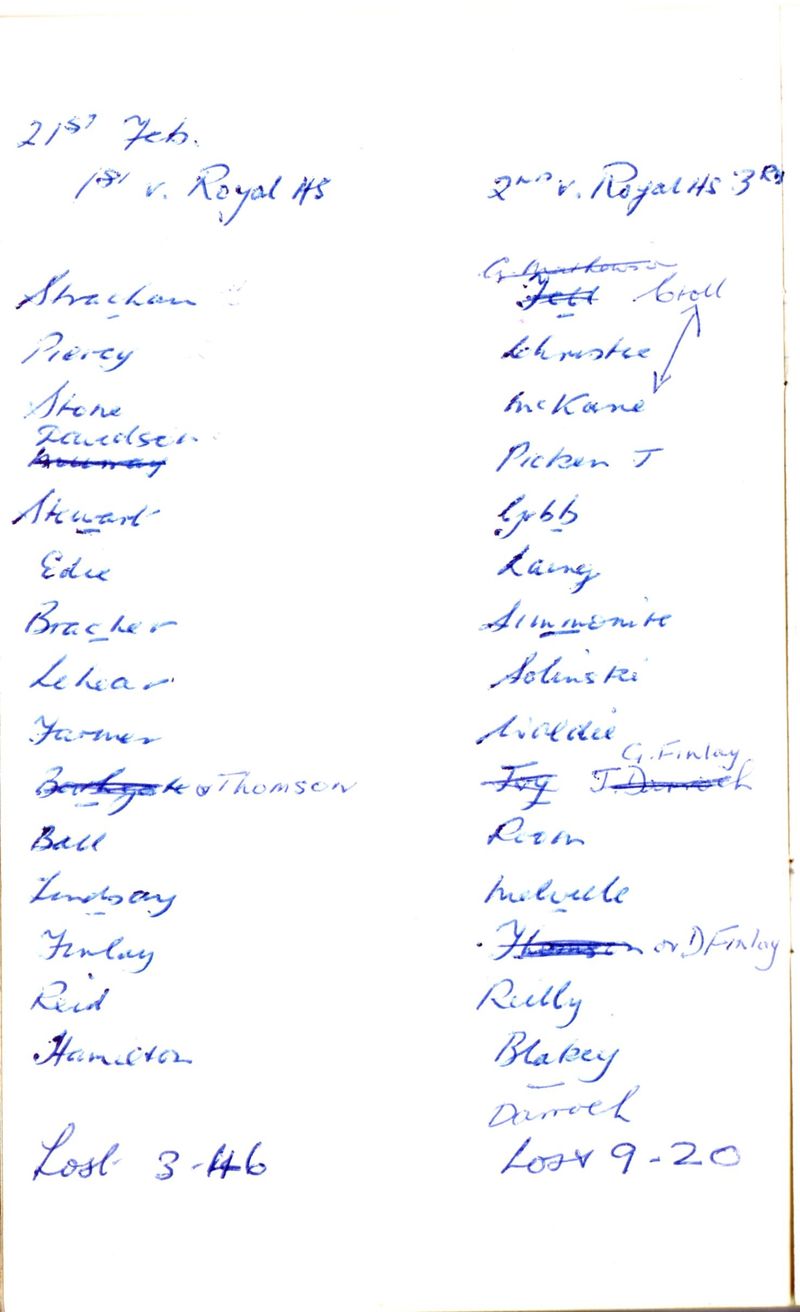 21ST Feb.
1ST v. Royal HS
Strachan
Piercy
Stone
Davidson
Murray
Stewart
Edie
Bracher
Lehear
Farmer
Bathgate or Thomson
Ball
Lindsay
Finlay
Reid
Hamilton
Lost 3-46
2ND v. Royal HS 3RD
G. Mathewson
Croll
Christie
McKane
Picken J
Gibb
Laing
Simmonite
Solinski
Goldie
G. Finlay
Ivy J. Darroch
Melville
Thomson or D Finlay
Reilly
Blakey
Darroch
Lost 9-20